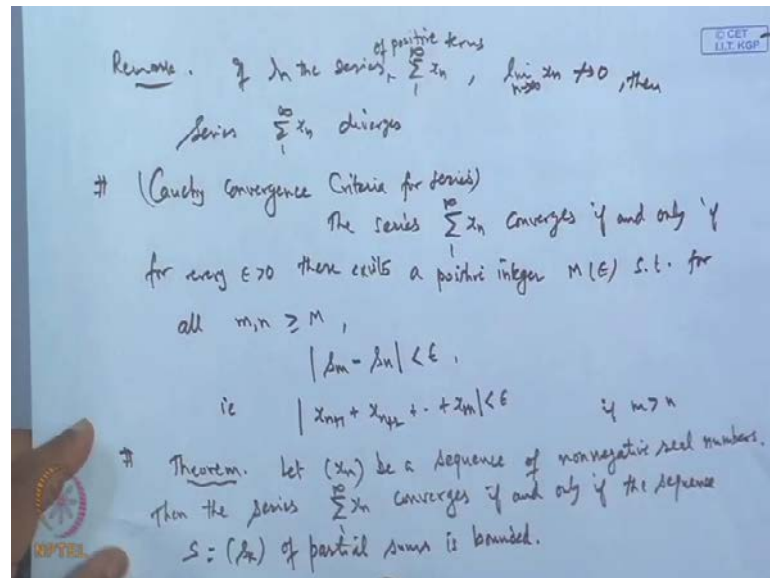 of positive terms
© CET
I.I.T. KGP
Remark. If In the series, ∑_1^∞ xn, lim_{n→∞} xn ↛0, then
Series ∑_1^∞ xn diverges
# (Cauchy Convergence Criteria for series)
The series ∑_1^∞ xn converges if and only if
for every ϵ>0 there exits a positive integer M(ϵ) s.t. for
all m,n ≥ M,
|sm - sn| < ϵ.
ie |xn+1 + xn+2 + .. + xm| < ϵ if m > n
# Theorem. Let (xn) be a sequence of nonnegative real numbers.
Then the series ∑_1^∞ xn converges if and only if the sequence
S = (sk) of partial sums is bounded.
NPTEL